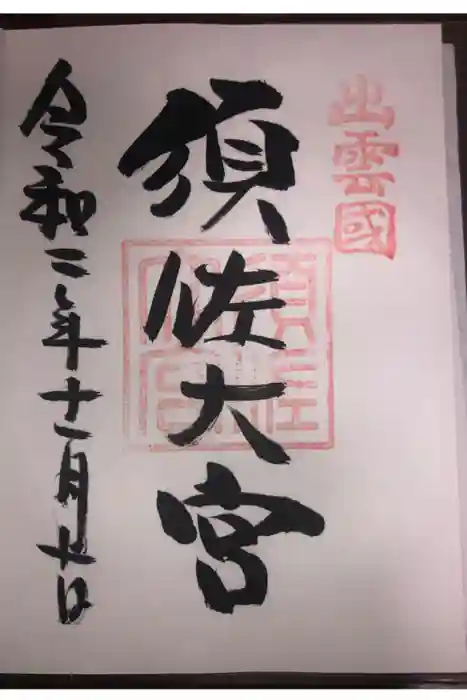 出雲國
須佐大宮
令和二年十一月七日